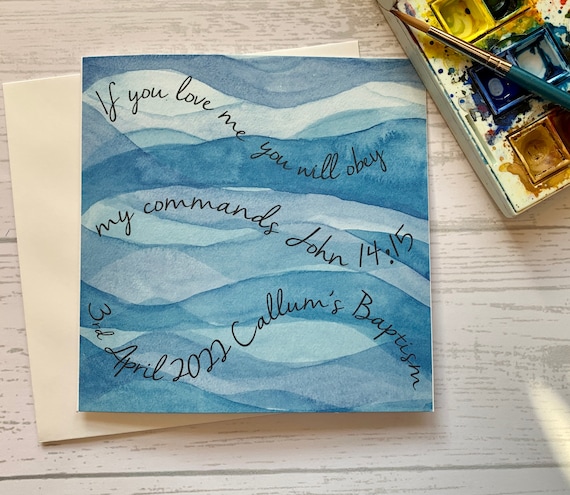 If you love me you will obey
my commands John 14:15
3rd April 2022 Callum's Baptism